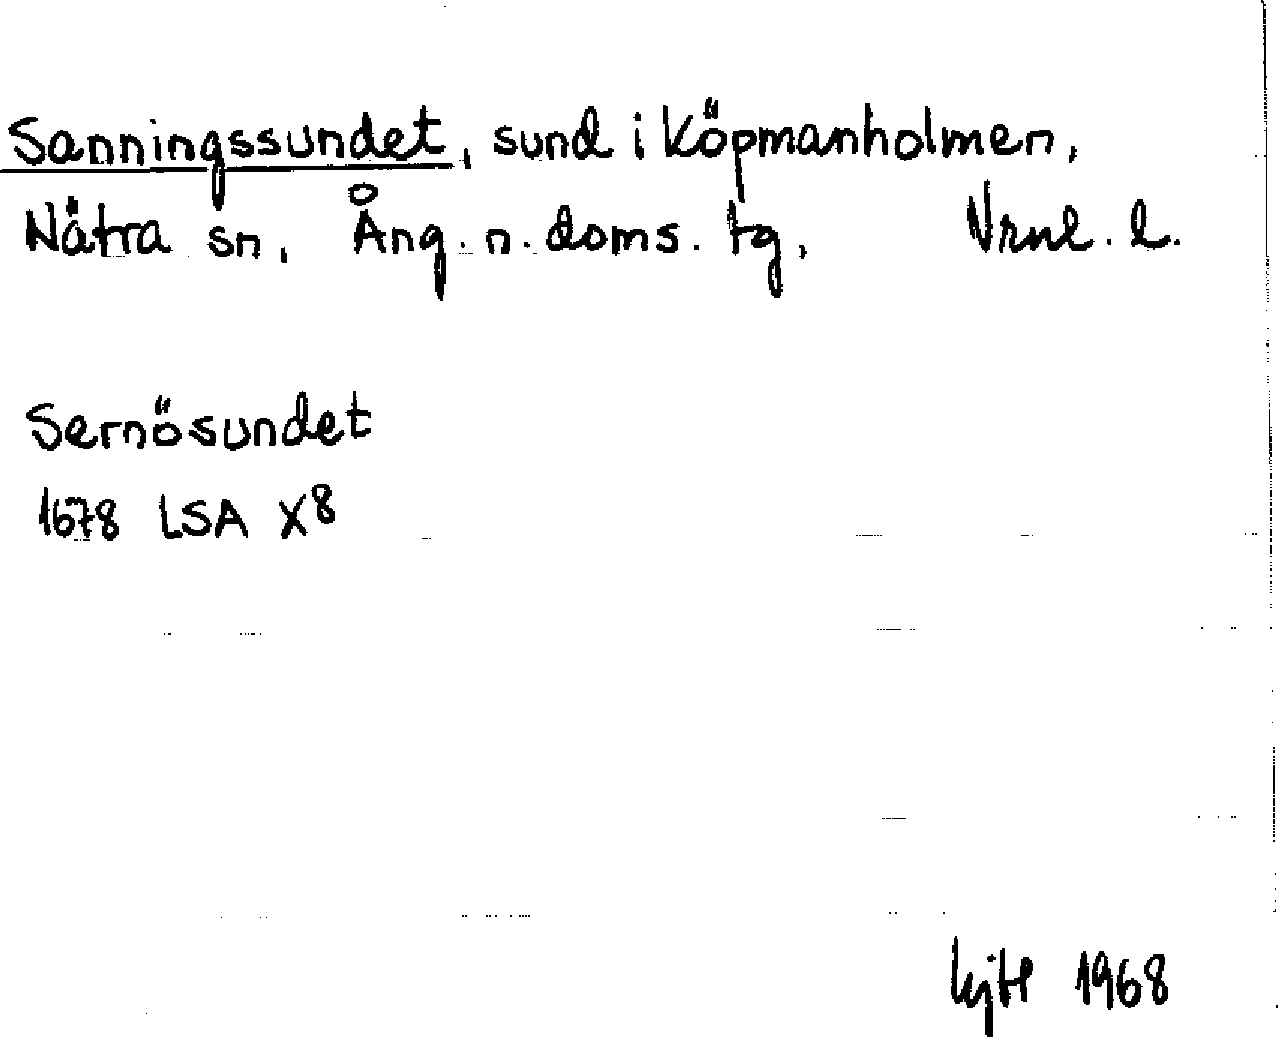 Sanningssundet, sund i Köpmanholmen,
Nätra sn, Ång. n. doms. tg, Vrnl. l.
Sernösundet
1678 LSA X8
1968